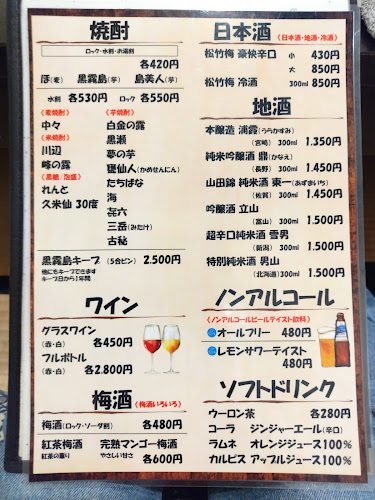 焼酎
ロック・水割・お湯割
各420円
ほ(麦) 黒霧島(芋) 島美人(芋)
水割 各530円 ロック 各550円
(麦焼酎) (芋焼酎)
中々 白金の露
(米焼酎) 黒瀬
川辺 夢の芋
峰の露 甕仙人(かめせんにん)
(黒糖/泡盛) たちばな
れんと 海
久米仙 30度 㐂六
三岳(みたけ)
古秘
黒霧島キープ (5合ビン) 2.500円
他にもキープできます
キープ日から1年間
ワイン
グラスワイン
(赤・白) 各450円
フルボトル
(赤・白) 各2.800円
梅酒 (梅酒いろいろ)
梅酒(ロック・ソーダ割) 各480円
紅茶梅酒 完熟マンゴー梅酒
紅茶の薫り やさしい甘さ 各600円
日本酒 (日本酒・地酒・冷酒)
松竹梅 豪快辛口 小 430円
大 850円
松竹梅 冷酒 300ml 850円
地酒
本醸造 浦霞(うらかすみ)
(宮崎) 300ml 1.350円
純米吟醸酒 鼎(かなえ)
(長野) 300ml 1.450円
山田錦 純米酒 東一(あずまいち)
(佐賀) 300ml 1.450円
吟醸酒 立山
(富山) 300ml 1.500円
超辛口純米酒 雪男
(新潟) 300ml 1.500円
特別純米酒 男山
(北海道)300ml 1.500円
ノンアルコール
(ノンアルコールビールテイスト飲料)
オールフリー 480円
レモンサワーテイスト
480円
ソフトドリンク
ウーロン茶 各280円
コーラ ジンジャーエール(辛口)
ラムネ オレンジジュース100%
カルピス アップルジュース100%